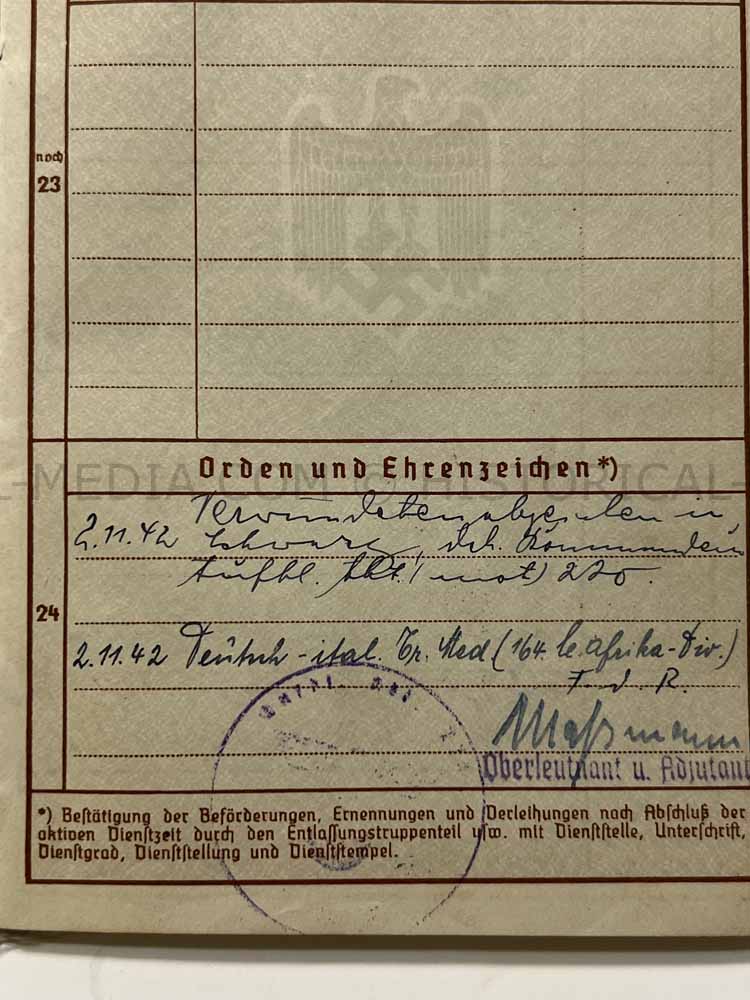 noch
23
Orden und Ehrenzeichen*)
L-MEDIA.COM © HISTORICAL-
2.11.42 Verwundetenabzeichen in
schwarz, dch. Kommandeur
Aufkl. Abt. (mot) 220.
24
2.11.42 Deutsch-ital. Er. Med (164. le. Afrika-Div.)
F. d. R.
Oberleutnant u. Adjutant
*) Bestätigung der Beförderungen, Ernennungen und Verleihungen nach Abschluß der
aktiven Dienstzeit durch den Entlassungstruppenteil usw. mit Dienststelle, Unterschrift,
Dienstgrad, Dienststellung und Dienststempel.